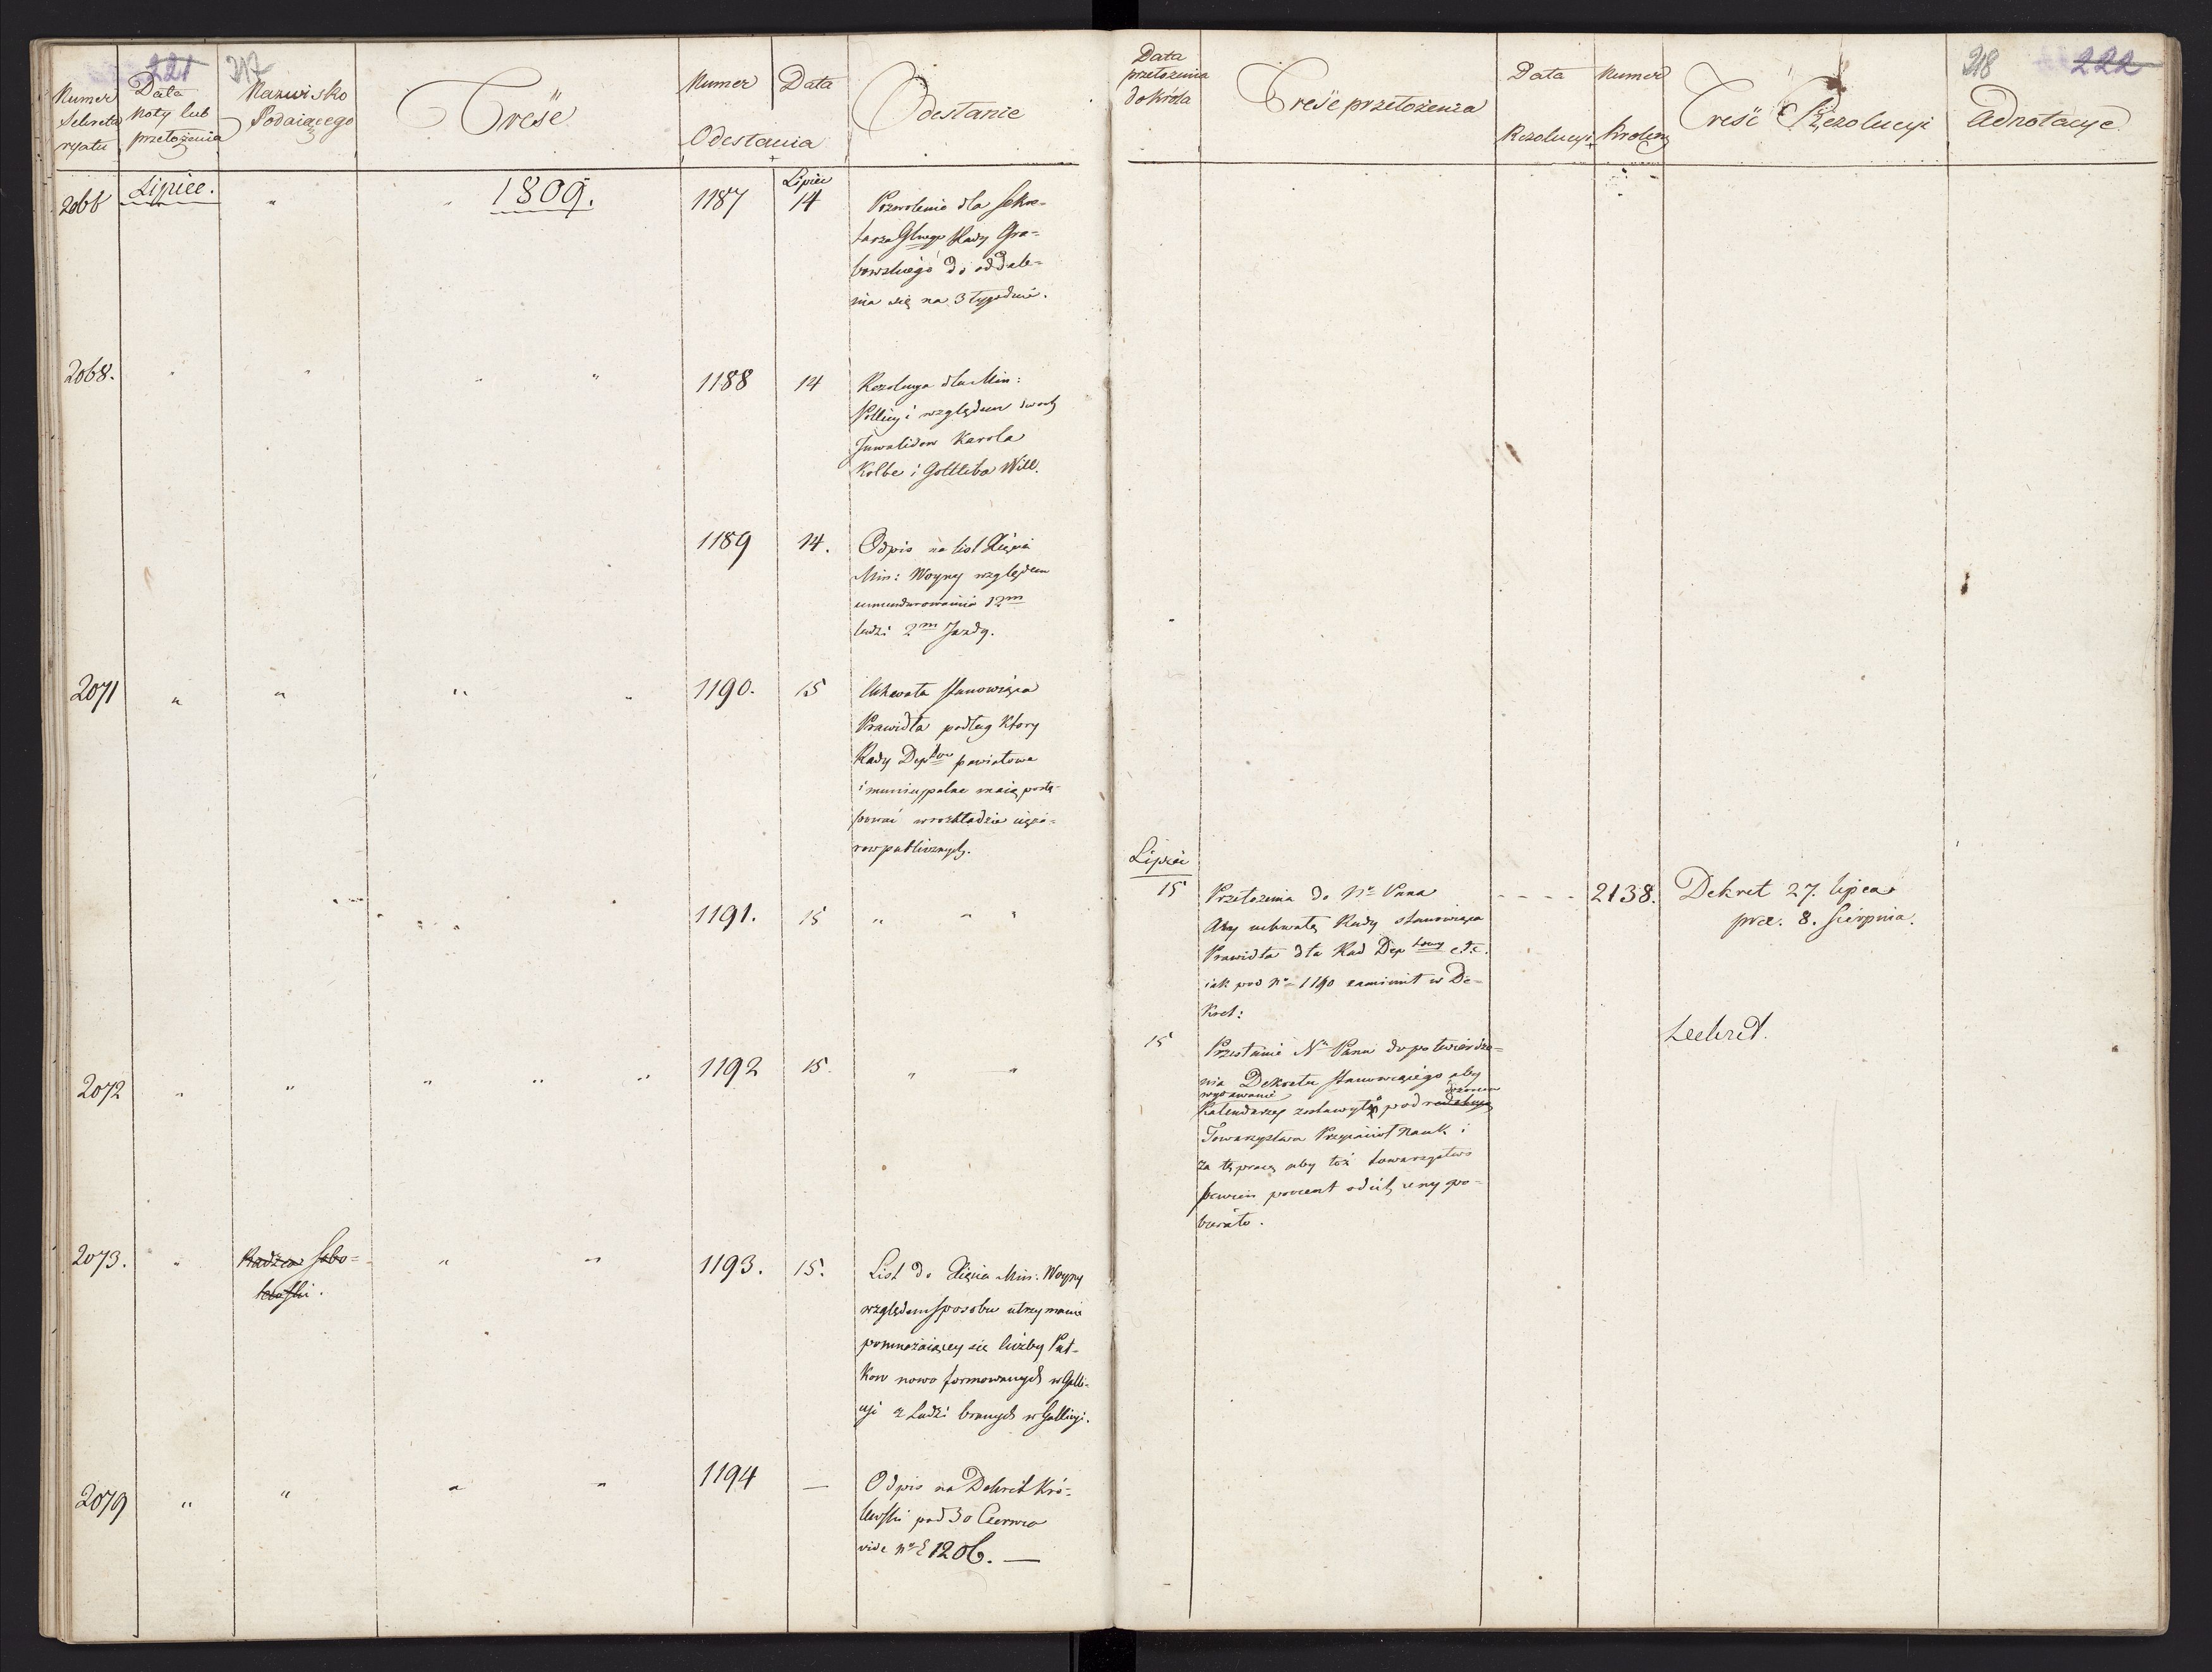 221 217
Numer Sekretaryatu
Data noty lub przełożenia
Nazwisko Podaiącego
Treść
Numer Data
Odesłania
Odesłanie
2066 Lipiec. " " 1809. 1187 Lipiec 14 Pozwolenie dla Sekre=
tarza Głnego Rady Gra=
bowskiego do oddale=
nia się na 3 tygodnie.
2068. " " " " 1188 14 Rezolucya dla Min:
Policyi względem dwoch
Inwalidow Karola
Kolbe i Gottliba Will.
1189 14. Odpis na list Xięcia
Min: Woyny względem
umundurowania 12m
ludzi 2m Jazdy.
2071 " " " " 1190. 15 Uchwała stanowiąca
Prawidła podług ktory
Rady Deptwe powiatowe
i municypalne maią postę-
pować w rozkładzie cięża=
row publicznych.
1191. 15 " " "
2072 " " " " " 1192 15. " "
2073. " Radzca Sobo=
lewski. " " 1193. 15. List do Xięcia Min: Woyny
względem sposobu utrzymania
pomnażaiącey się liczby Puł-
kow nowo formowanych w Galli-
cyi z Ludzi branych w Gallicyi.
2079 " " " " 1194 — Odpis na Dekret Kró-
lewski pod 30 Czerwca
vide No 1206. —
218 222
Data przełożenia do Króla
Treść przełożenia
Data Numer
Rezolucyi
Treść Rezolucyi
Adnotacye
Lipiec
15 Przełożenia do No Pana - - - - 2138. Dekret 27. lipca
Aby uchwałę Rady stanowiąca prae. 8. Sierpnia.
Prawidła dla Rad Dep towy etc.
iak pod No 1190 zamienił w De-
kret:
15 Przesłanie No Panu do potwierdze= Dekret.
nia Dekretu stanowiącego aby
wydawanie dozorem
Kalendarzy zostawyło pod redakcyą
Towarzystwa Przyiaciół Nauk i
za tę pracę aby toż towarzystwo
pewien procent od ich ceny po-
bierało.